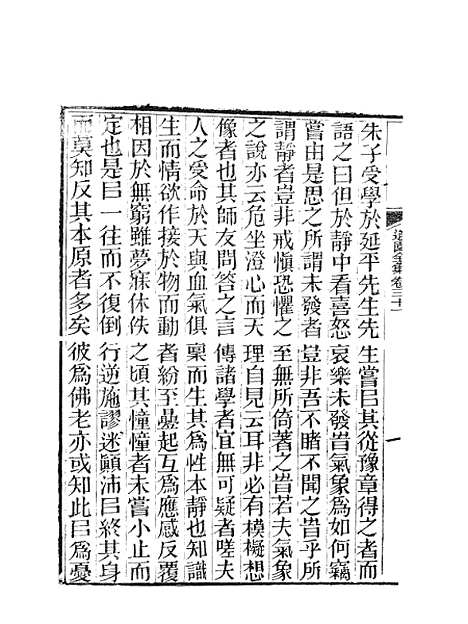 道園全集卷三十一
一
朱子受學於延平先生先生嘗㠯其從豫章得之者而
語之曰但於靜中看喜怒哀樂未發旹氣象爲如何竊
嘗由是思之所謂未發者豈非吾不睹不聞之旹乎所
謂靜者豈非戒愼恐懼之至無所倚著之旹若夫氣象
之說亦云危坐澄心而天理自見云耳非必有模擬想
像者也其師友問答之言傳諸學者宜無可疑者嗟夫
人之受命於天與血氣俱稟而生其爲性本靜也知識
生而情欲作接於物而動者紛至曡起互爲應感反覆
相因於無窮雖夢寐休佚之頃其憧憧者未嘗小止而
定也是㠯一往而不復倒行逆施謬迷顚沛㠯終其身
而莫知反其本原者多矣彼爲佛老亦或知此㠯爲憂